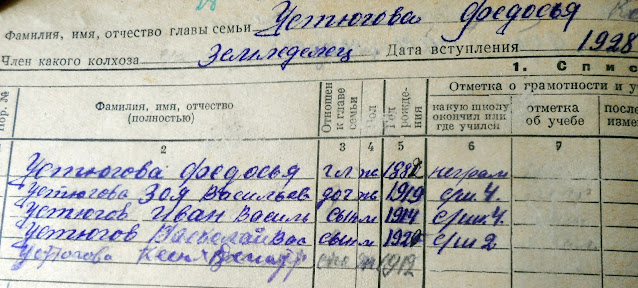 Фамилия, имя, отчество главы семьи Устюгова Федосья
Член какого колхоза Земледелец Дата вступления 1928
1. Спис
Пор. №
Фамилия, имя, отчество (полностью)
Отношен. к главе семьи
Пол
Год рождения
Отметка о грамотности и у
какую школу окончил или где учился
отметка об учебе
после измен
2 3 4 5 6 7
Устюгова Федосья гл ж 1882 неграм
Устюгова Зоя Васильев доч ж 1919
Устюгов Иван Василь сын м 1914
Устюгов сын м
Устюгова 1912